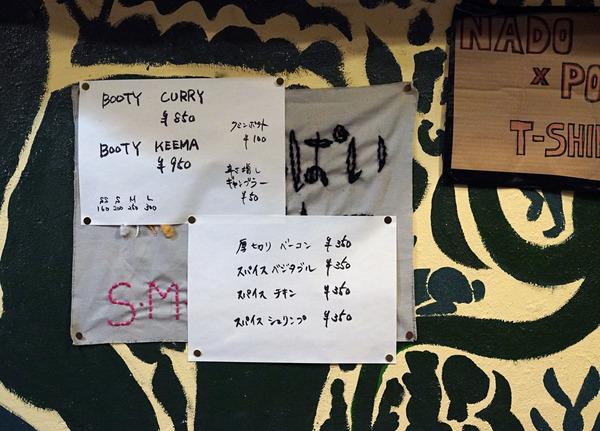 BOOTY CURRY
¥850
BOOTY KEEMA
¥950
SS S M L
160 200 250 300
クミンポテト
¥100
辛さ増し
ギャンブラー
¥50
ぱい
S.M
厚切りベーコン ¥350
スパイスベジタブル ¥350
スパイスチキン ¥350
スパイスシュリンプ ¥350
NADO
× PO
T-SHI